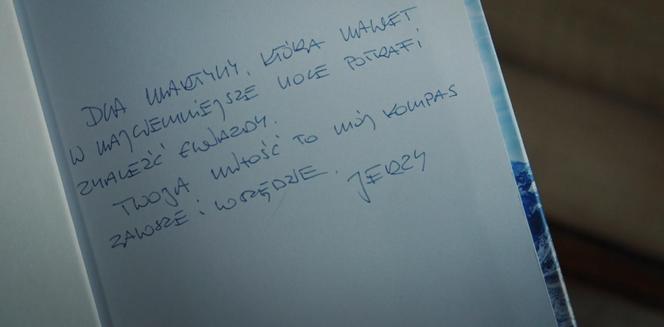 DLA MARTYNY, KTÓRA NAWET
W NAJCIEMNIEJSZE NOCE POTRAFI
ZNALEŹĆ GWIAZDY.
TWOJA MIŁOŚĆ TO MÓJ KOMPAS
ZAWSZE I WSZĘDZIE. JERZY